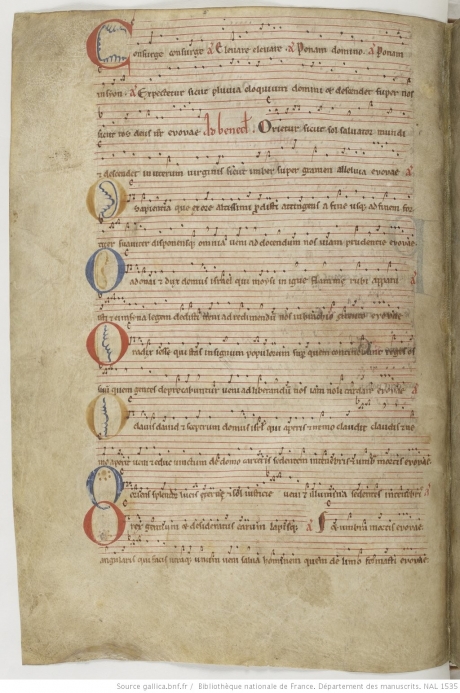 Consurge consurge A Elevare elevare. A Ponam domino. A Ponam
in syon. A Expectetur sicut pluvia eloquium domini et descendet super nos
sicut ros deus nr evovae. Ad bened. Orietur sicut sol salvator mundi
et descendet in uterum virginis sicut imber super gramen alleluia evovae A
O sapientia que ex ore altissimi prodisti attingens a fine usq ad finem for
titer suaviter disponensq omnia veni ad docendum nos viam prudencie evovae
O adonai et dux domus israel qui moysi in igne flamme rubi apparu A
isti et ei in syna legem dedisti veni ad redimendum nos in brachio extento evovae
O radix iesse qui stas in signum populorum sup quem continebunt reges os
suum quem gentes deprecabuntur veni ad liberandum nos iam noli tardare evovae A
O clavis david et sceptrum domus isrl qui aperis et nemo claudit claudis et ne
mo aperit veni et educ vinctum de domo carceris sedentem in tenebris et umb mortis evovae
O oriens splendor lucis eterne et sol iusticie veni et illumina sedentes in tenebris A
O rex gentium et desideratus earum lapisq A et umbra mortis evovae
angularis qui facis utraq unum veni salva hominem quem de limo formasti evovae
Source gallica.bnf.fr / Bibliothèque nationale de France, Département des manuscrits, NAL 1535